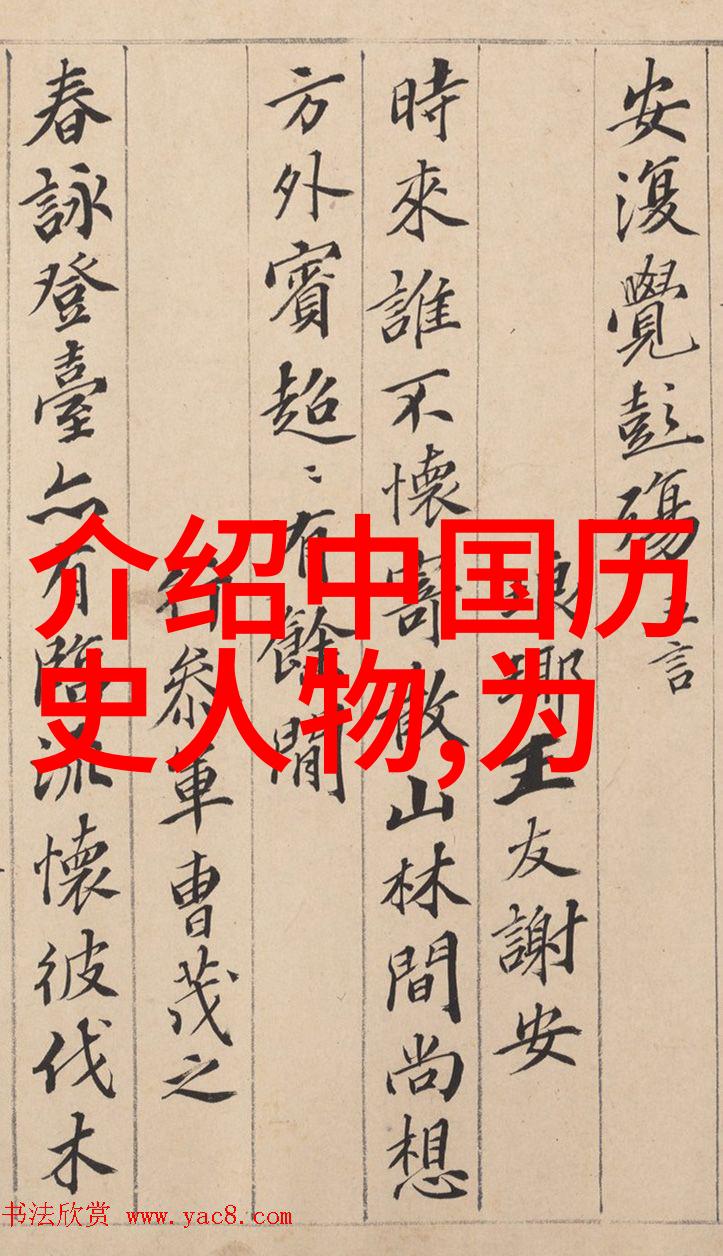 安復覺彭殤 五言
琅瑘王友謝安
時來誰不懷寄散山林間尚想
方外賓超〻有餘閒
行叅軍曹茂之
春詠登臺亦有臨流懷彼伐木
介绍中国历
史人物,为
书法欣赏 www.yac8.com